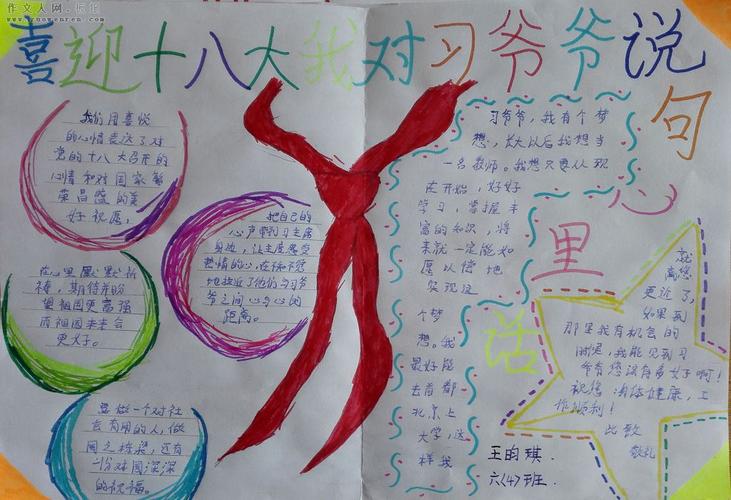 作文人网.标准
www.zuowenren.com
喜迎十八大我对习爷爷说
句
心
里
话
我们用喜悦
的心情表达了对
党的十八大召开的
心情和对国家繁
荣昌盛的美
好祝愿，
把自己的
心声带到习主席
身边，让主席感受
热情的心，在你不觉
地拉近了他们与习爷
爷之间心与心的
距离。
在心里默默祈
祷，期待并盼
望祖国更富强
而祖国未来会
更好。
要做一个对社
会有用的人，做
国之栋梁，还有
一份对国深深
的祝福。
习爷爷，我有个梦
想，长大以后我想当
一名教师。我想只要从现
在开始，好好
学习，掌握丰
富的知识，将
来就一定能如
愿以偿地
实现这
个梦
想。我
最好能
去首都
北京上
大学，这
样我
就
离您
更近了，
如果到
那里我有机会的
时候，我能见到习
爷爷您没有多好啊！
祝您：身体健康，工
作顺利！
此致
敬礼
王昀琪.
六(4)班.